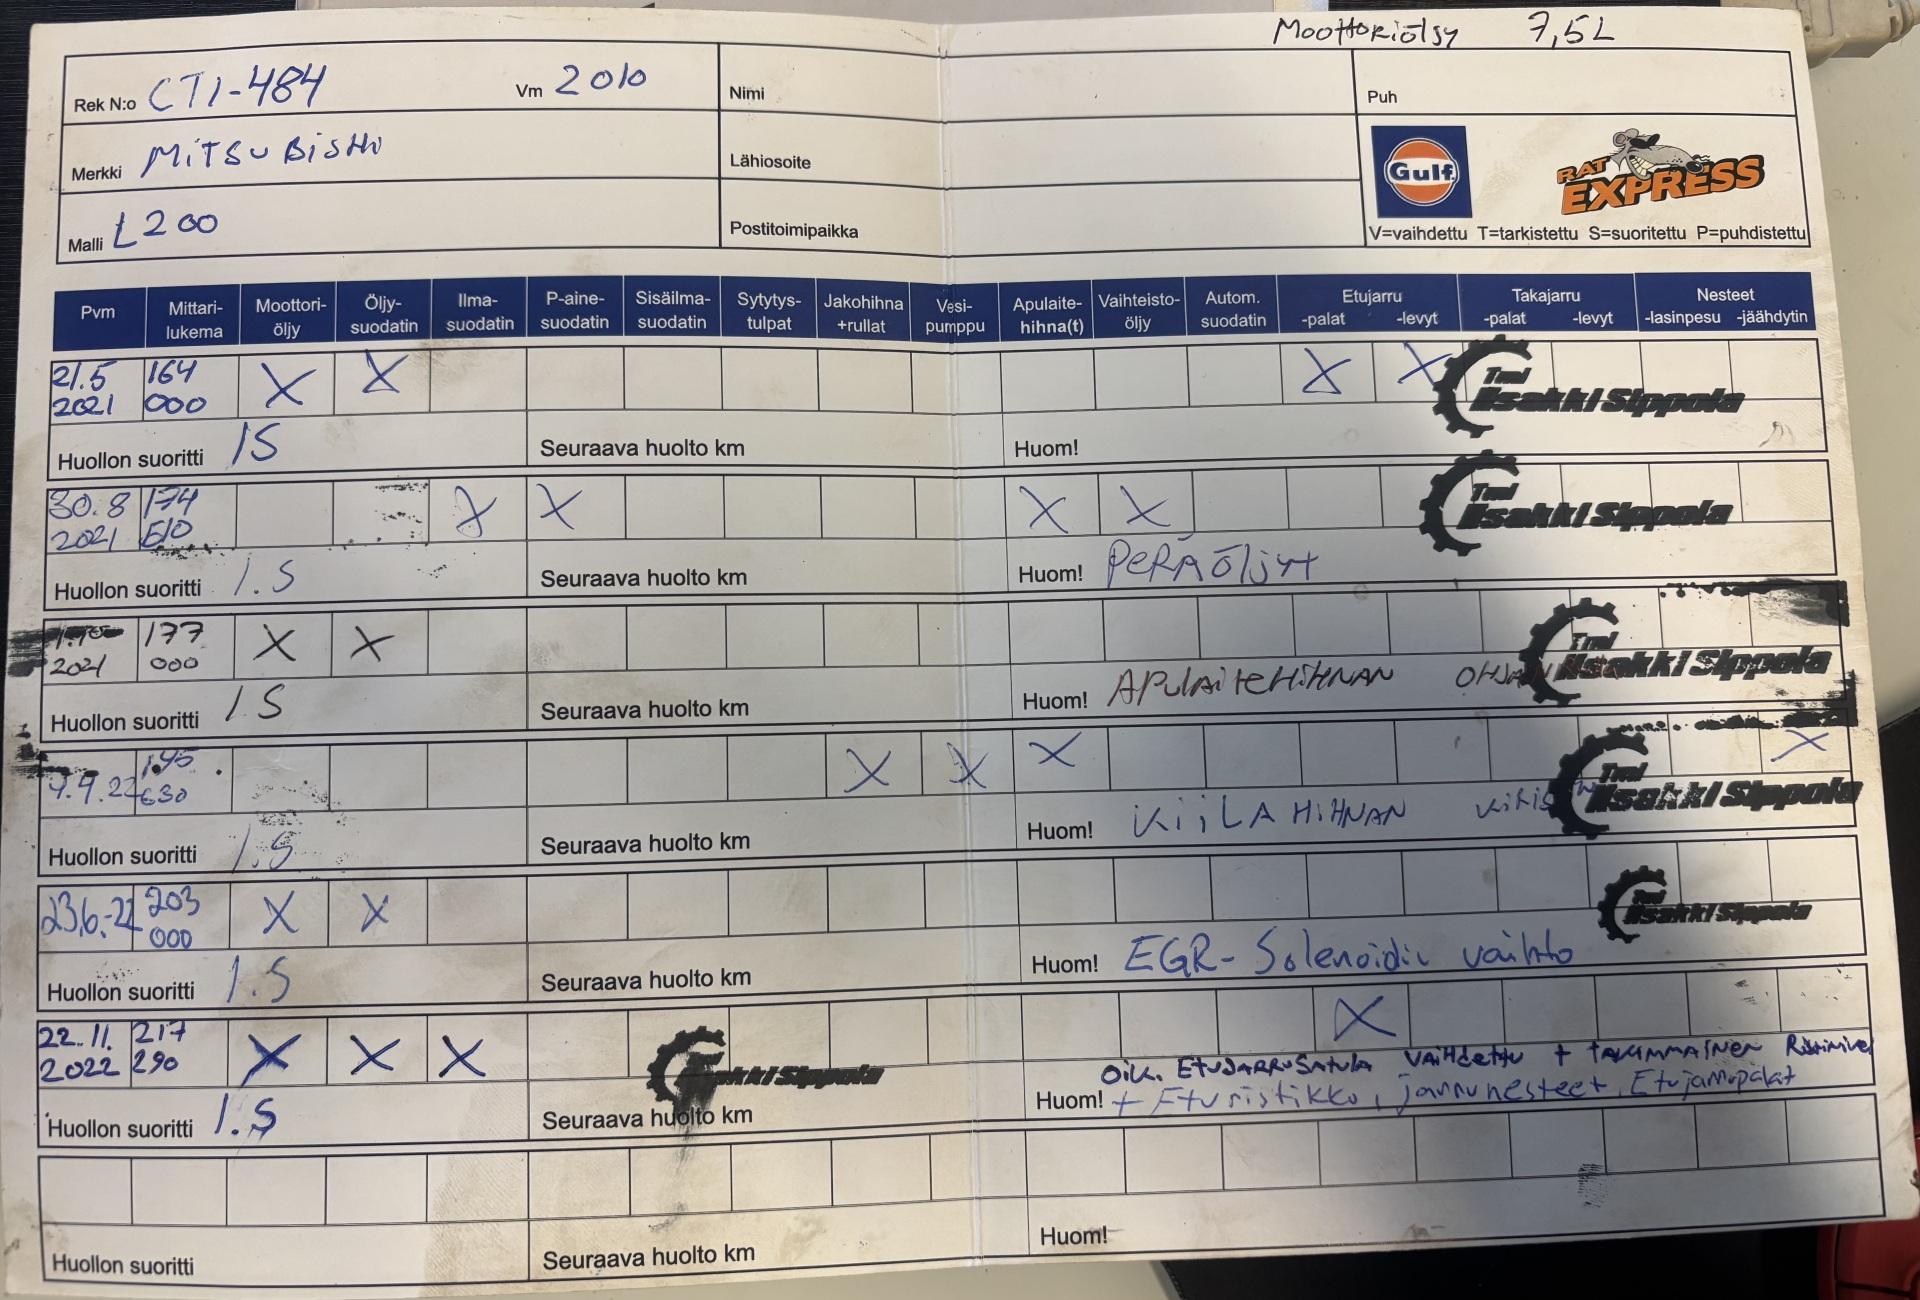 Moottoriöljy 7,5L
Rek N:o CTI-484 Vm 2010 Nimi Puh
Merkki MITSUBISHI Lähiosoite
Gulf RAT EXPRESS
Malli L200 Postitoimipaikka
V=vaihdettu T=tarkistettu S=suoritettu P=puhdistettu
Pvm Mittari-lukema Moottori-öljy Öljy-suodatin Ilma-suodatin P-aine-suodatin Sisäilma-suodatin Sytytys-tulpat Jakohihna +rullat Vesi-pumppu Apulaite-hihna(t) Vaihteisto-öljy Autom. suodatin Etujarru -palat -levyt Takajarru -palat -levyt Nesteet -lasinpesu -jäähdytin
21.5 2021 164 000 X X X X
Tmi Iisakki Sippola
Huollon suoritti IS Seuraava huolto km Huom!
30.8 2021 174 510 X X X X
Tmi Iisakki Sippola
Huollon suoritti I.S Seuraava huolto km Huom! PERÄÖLJYT
2021 177 000 X X
Tmi Iisakki Sippola
Huollon suoritti IS Seuraava huolto km Huom! APULAITEHIHNAN
195 630 X X X X
Tmi Iisakki Sippola
Huollon suoritti I.S Seuraava huolto km Huom! KIILAHIHNAN
23.6.22 203 000 X X
Tmi Iisakki Sippola
Huollon suoritti I.S Seuraava huolto km Huom! EGR-Solenoidin vaihto
22.11. 2022 217 290 X X X X
Iisakki Sippola
OIK. ETUJARRUSATULA VAIHDETTU + TAKIMMAINEN
Huollon suoritti I.S Seuraava huolto km Huom! + Eturistikko, jarrunesteet, Etujarrupalat
Huollon suoritti Seuraava huolto km Huom!